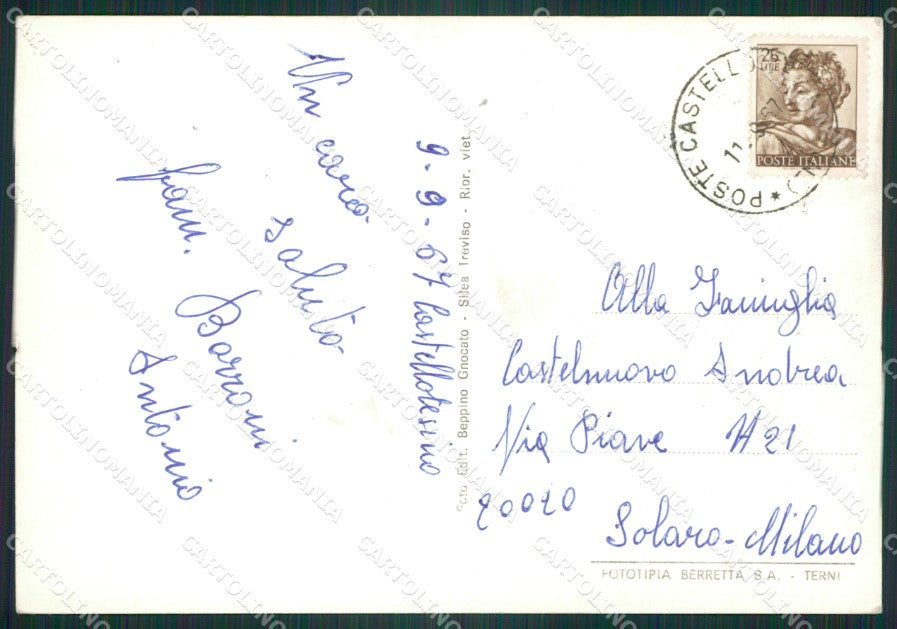 Un caro
saluto
fam. Barroni
Antonio
9-9-67 Castellotesino
Foto Edit. Beppino Gnocato - Silea Treviso - Rior. viet.
25
LIRE
POSTE ITALIANE
POSTE CASTELLO
Alla Famiglia
Castelnuovo Andrea
Via Piave N 21
20020
Solaro-Milano
FOTOTIPIA BERRETTA S.A. - TERNI
CARTOLINOMANIA